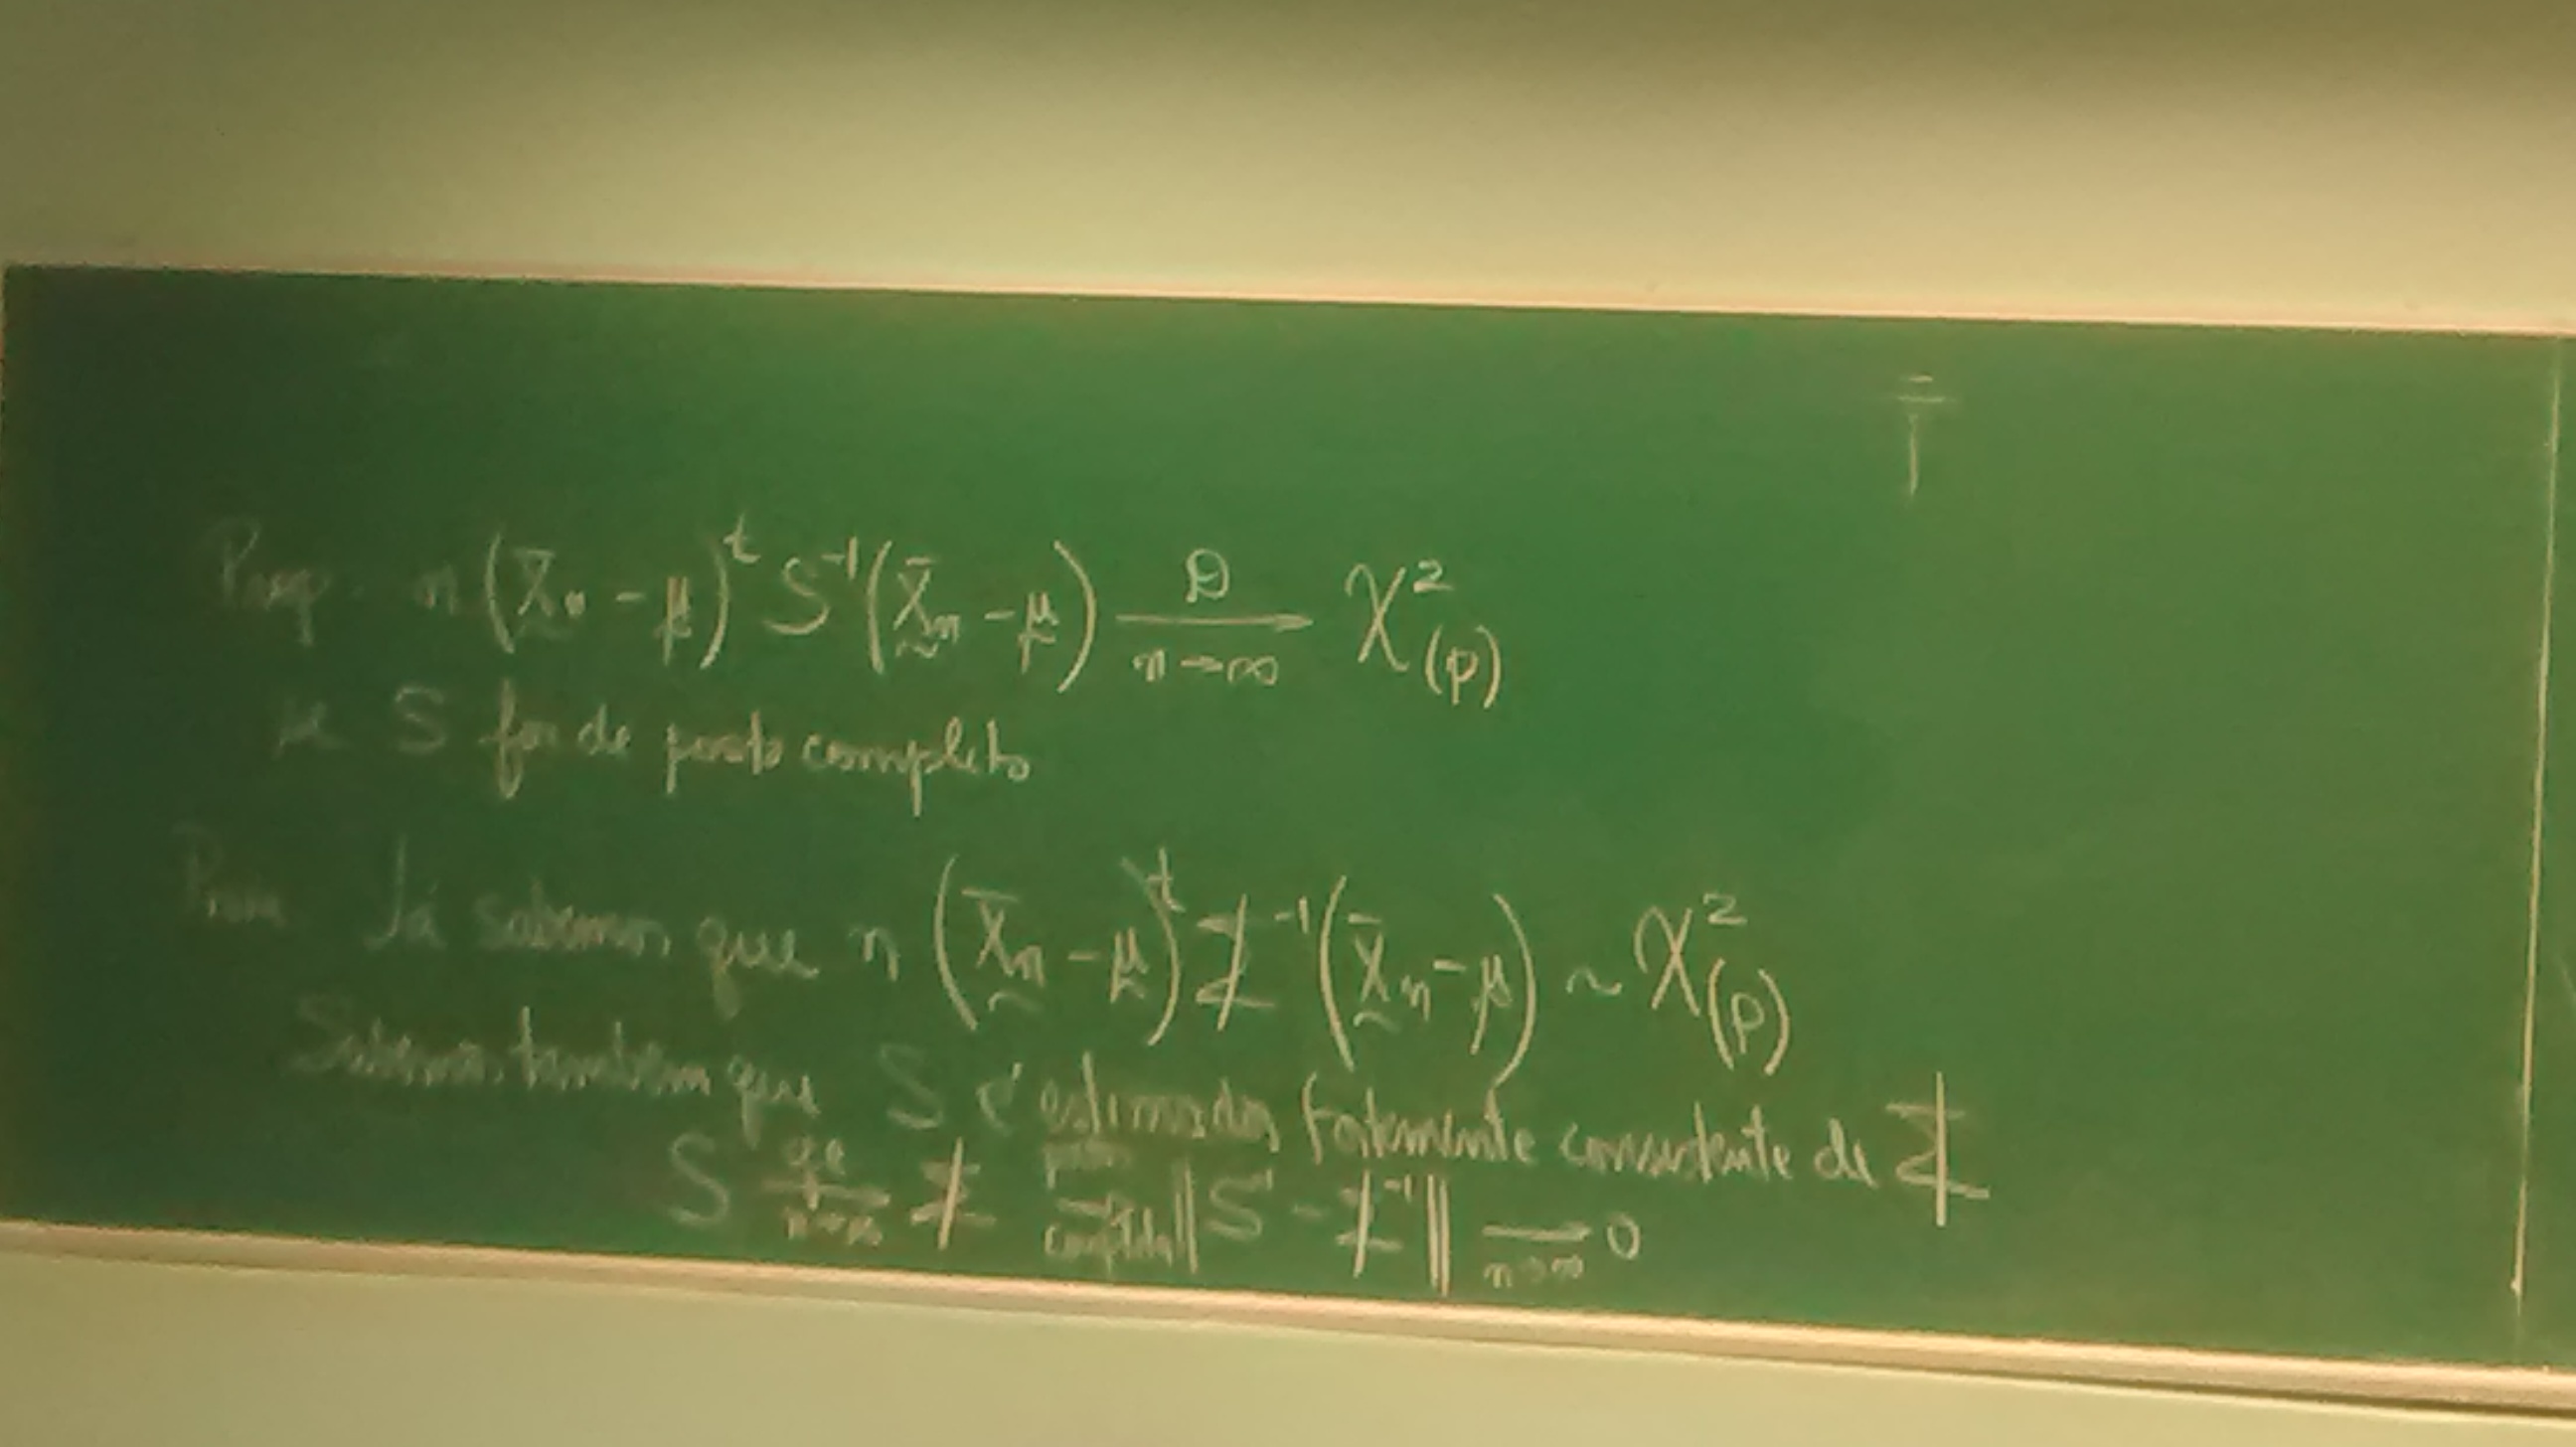 Prop. n(X̄n - μ)ᵗ S⁻¹(X̄n - μ) 𝒟→ n→∞ χ²(p)
se S for de posto completo
Prova Já sabemos que n(X̄n - μ)ᵗ Σ⁻¹(X̄n - μ) ~ χ²(p)
Sabemos também que S é estimador fortemente consistente de Σ
S qc→ n→∞ Σ posto → completo ||S⁻¹ - Σ⁻¹|| → n→∞ 0